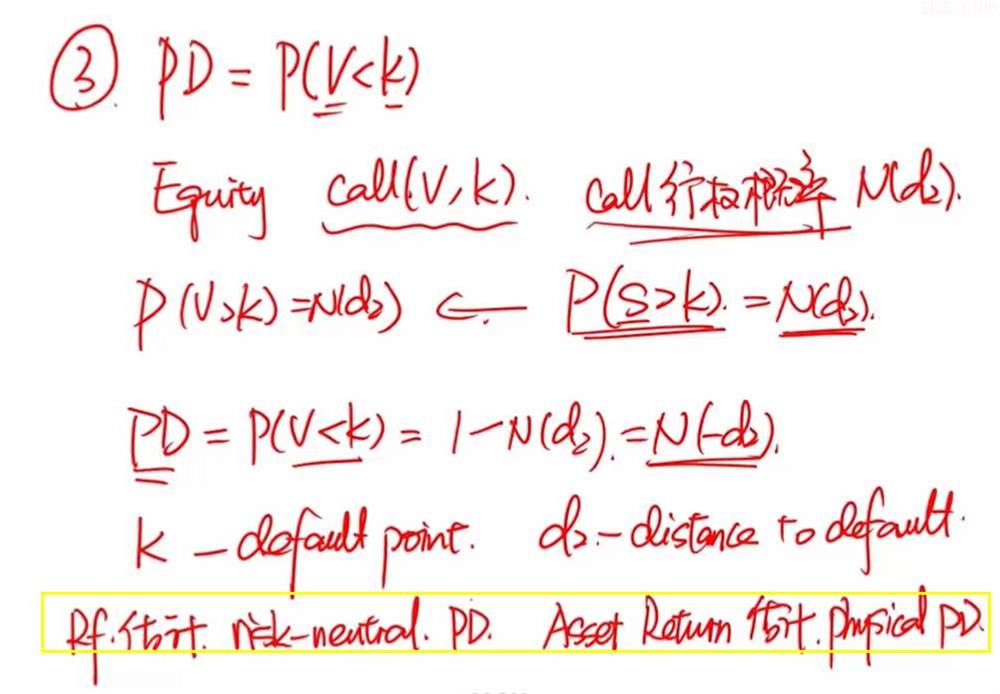 ③. PD = P(V<k)
Equity call(V,k). call行权概率 N(d₂).
P(V>k)=N(d₂) ← P(S>k).=N(d₂).
PD = P(V<k) = 1-N(d₂).=N(-d₂).
k - default point. d₂.-distance to default.
Rf.估计. risk-neutral. PD. Asset Return 估计.physical PD.